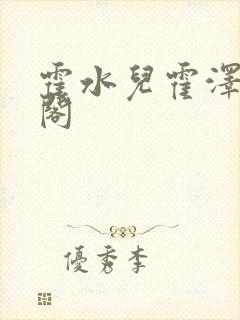 霍水兒霍澤
閣
優秀李